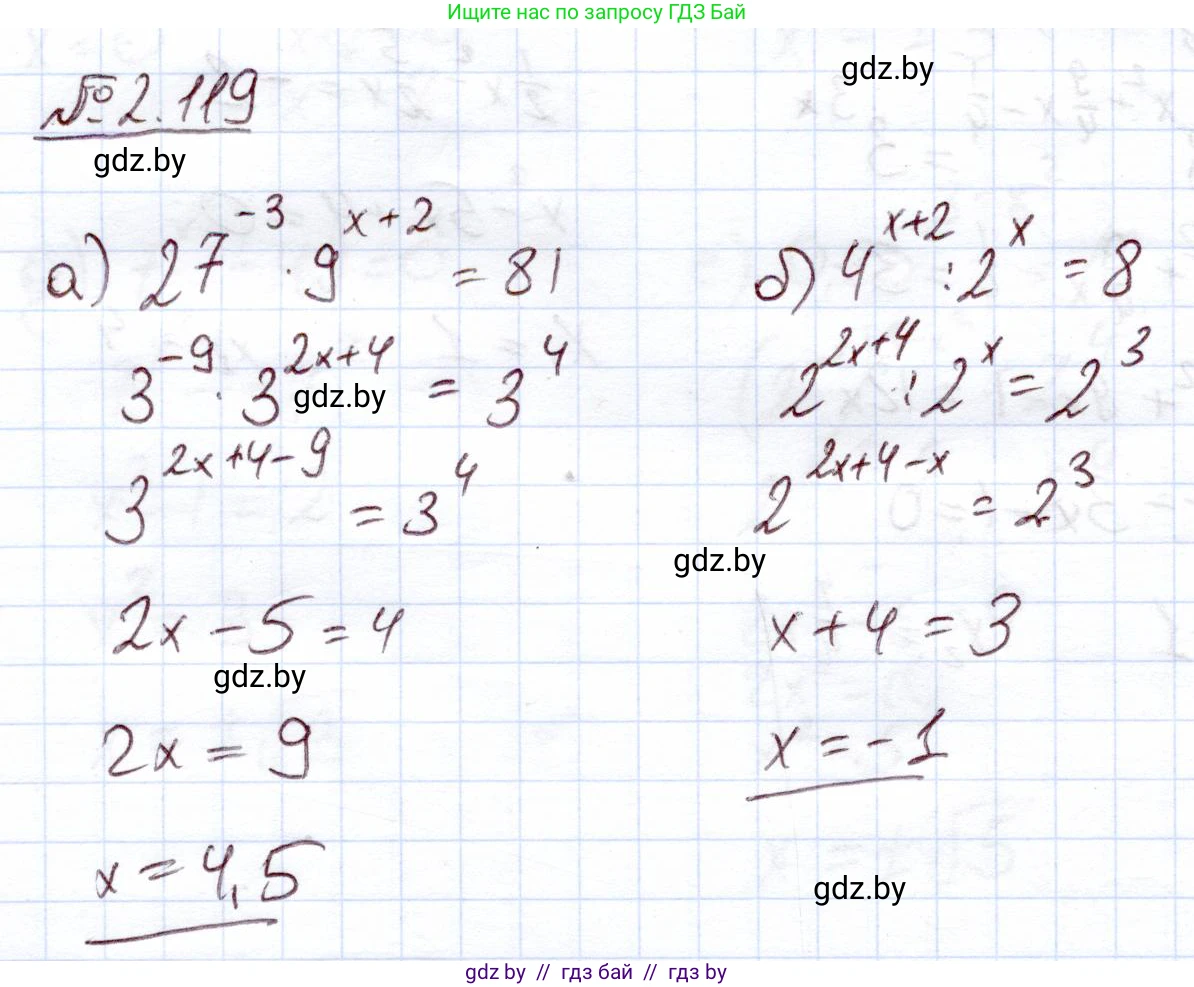 Ищите нас по запросу ГДЗ Бай
№ 2.119
gdz.by
gdz.by
а) 27^{-3} · 9^{x+2} = 81
3^{-9} · 3^{2x+4} = 3^4
gdz.by
3^{2x+4-9} = 3^4
2x - 5 = 4
gdz.by
2x = 9
x = 4,5
б) 4^{x+2} : 2^x = 8
2^{2x+4} : 2^x = 2^3
2^{2x+4-x} = 2^3
gdz.by
x + 4 = 3
x = -1
gdz.by
gdz.by // гдз бай // гдз by